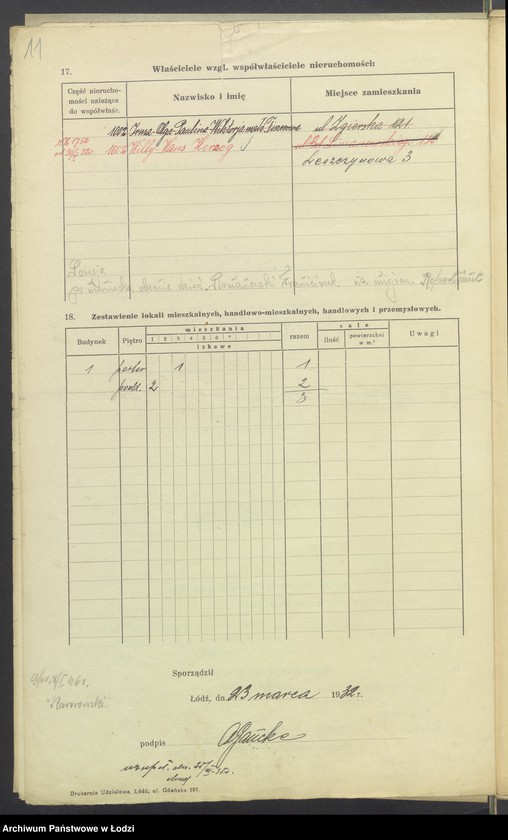 11
17. Właściciele wzgl. współwłaściciele nieruchomości:
Część nierucho-
mości należąca
do współwłaśc.
Nazwisko i imię
Miejsce zamieszkania
Irma-Olga-Paulina-Wiktorja ul. Zgierska 121.
Willy-Hans Herzog
Leszczynowa 3
obecnie Romanowski Franciszek na miejsc.
18. Zestawienie lokali mieszkalnych, handlowo-mieszkalnych, handlowych i przemysłowych.
Budynek
Piętro
mieszkania
1 2 3 4 5 6 7
izbowe
razem
sale
ilość
powierzchni w m.²
Uwagi
1 parter 1 1
podd. 2 2
3
Sporządził
Łódź, dn. 23 marca 1932 r.
podpis
Drukarnia Udziałowa, Łódź, ul. Gdańska 101.
Archiwum Państwowe w Łodzi